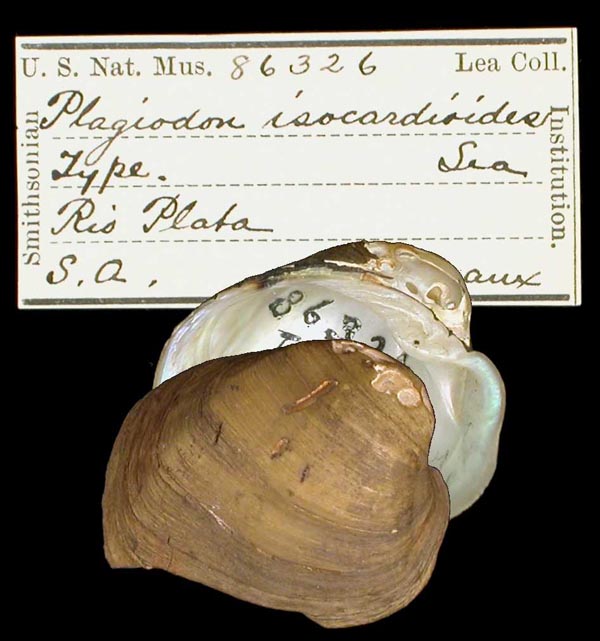 U. S. Nat. Mus. 86326 Lea Coll.
Smithsonian
Institution.
Plagiodon isocardioides
Type. Lea
Rio Plata
S. A. aux
863